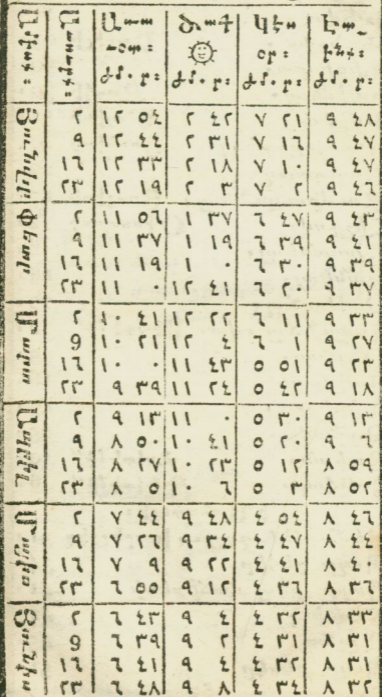 Ամիս։ Առա Ծագ Կէս
ւօտ։ օր։
ժմ. ր։ ժմ. ր։ ժմ. ր։ ժմ. ր։
Յունվար
٢ ١٢ ٥٤ ٢ ٤٢ ٧ ٢١ ٩ ٤٨
٩ ١٢ ٤٤ ٢ ٣١ ٧ ١٦ ٩ ٤٧
١٦ ١٢ ٣٣ ٢ ١٨ ٧ ١٠ ٩ ٤٧
٢٣ ١٢ ١٩ ٢ ٣ ٧ ٢ ٩ ٤٦
Փետր
٢ ١١ ٥٦ ١ ٣٧ ٦ ٤٧ ٩ ٤٣
٩ ١١ ٣٧ ١ ١٩ ٦ ٣٩ ٩ ٤١
١٦ ١١ ١٩ ١ ٠ ٦ ٣٠ ٩ ٣٩
٢٣ ١١ ٠ ١٢ ٤١ ٦ ٢٠ ٩ ٣٧
Մարտ
٢ ١٠ ٤١ ١٢ ٢٢ ٦ ١١ ٩ ٣٣
9 ١٠ ٢١ ١٢ ٤ ٦ ١ ٩ ٢٧
١٦ ١٠ ٠ ١١ ٤٣ ٥ ٥١ ٩ ٢٣
٢٣ ٩ ٣٩ ١١ ٢٤ ٥ ٤٢ ٩ ١٨
Ապրիլ
٢ ٩ ١٣ ١١ ٠ ٥ ٣٠ ٩ ١٢
٩ ٨ ٥٠ ١٠ ٤١ ٥ ٢٠ ٩ ٦
١٦ ٨ ٢٧ ١٠ ٢٣ ٥ ١٢ ٨ ٥٩
٢٣ ٨ ٥ ١٠ ٦ ٥ ٣ ٨ ٥٢
Մայիս
٢ ٧ ٤٤ ٩ ٤٨ ٤ ٥٤ ٨ ٤٦
٩ ٧ ٢٦ ٩ ٣٤ ٤ ٤٧ ٨ ٤٤
١٦ ٧ ٩ ٩ ٢٢ ٤ ٤١ ٨ ٤٠
٢٣ ٦ ٥٥ ٩ ١٢ ٤ ٣٦ ٨ ٣٦
Յունիս
٢ ٦ ٤٣ ٩ ٤ ٤ ٣٢ ٨ ٣٣
9 ٦ ٣٩ ٩ ٢ ٤ ٣١ ٨ ٣١
١٦ ٦ ٤١ ٩ ٤ ٤ ٣٢ ٨ ٣١
٢٣ ٦ ٤٨ ٩ ٨ ٤ ٣٤ ٨ ٣١